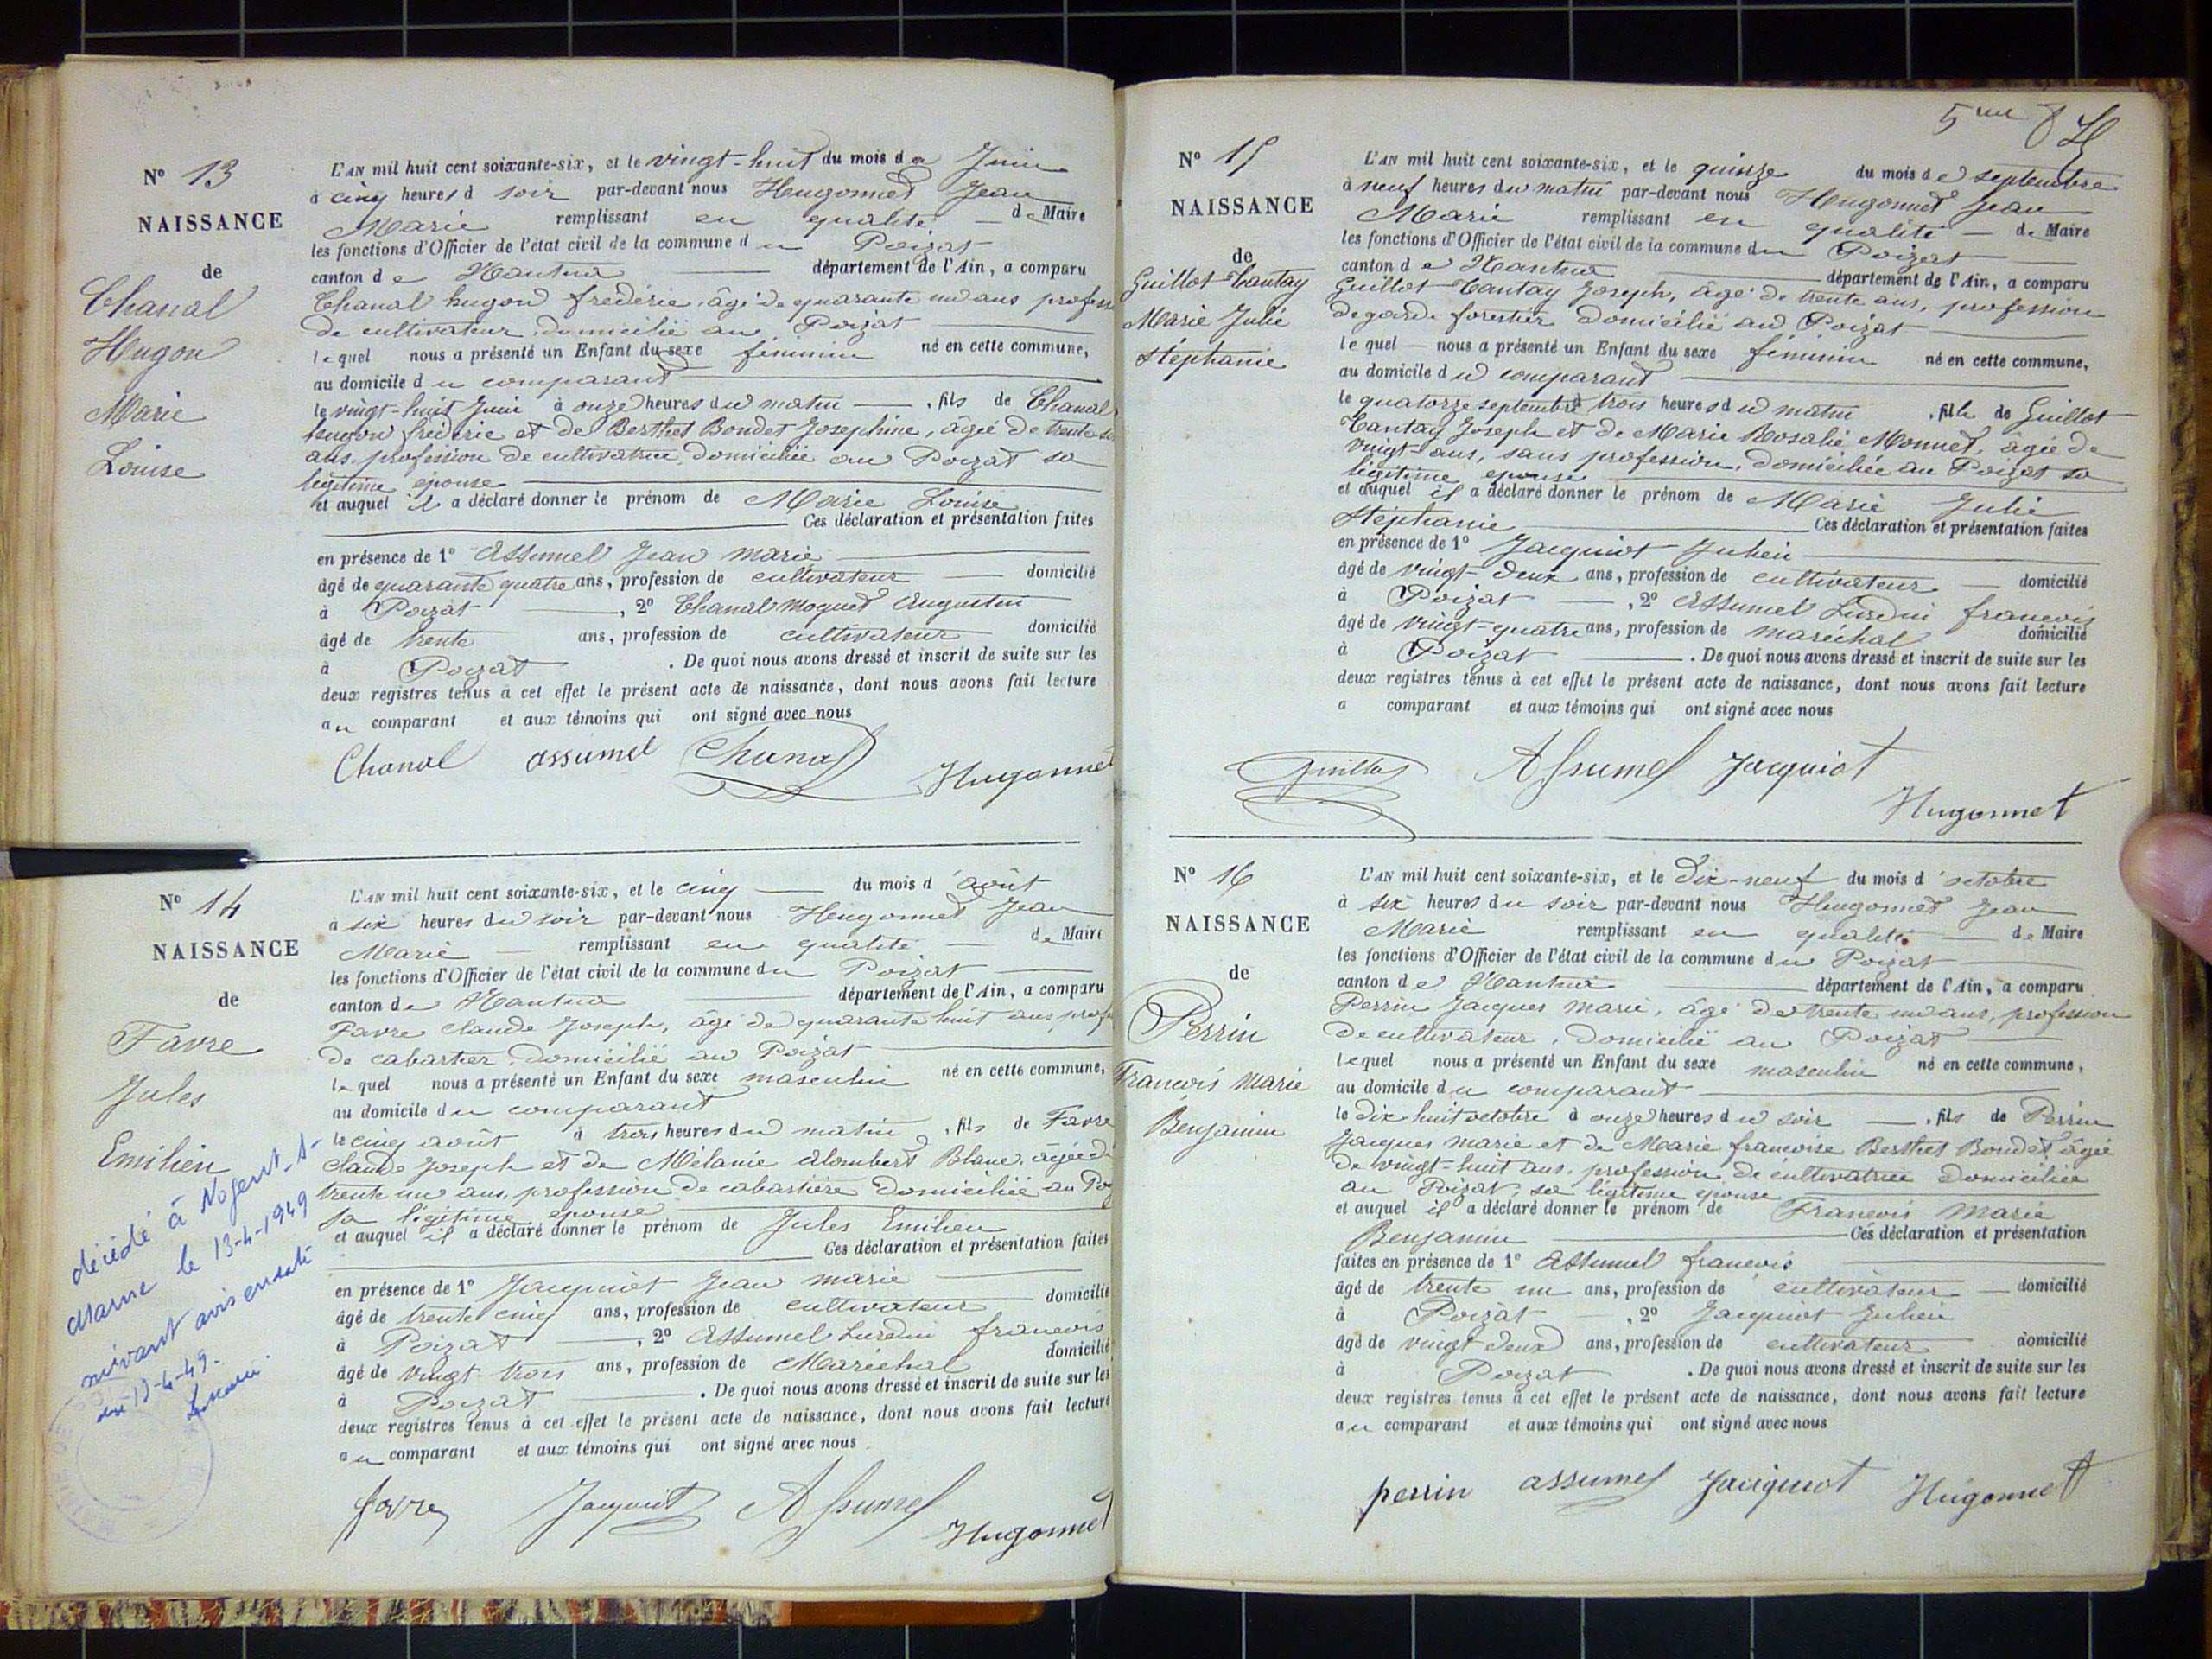 N° 13
NAISSANCE
de
Chanal
Hugon
Marie
Louise
L'AN mil huit cent soixante-six, et le vingt-huit du mois de Juin
à cinq heures d soir par-devant nous Hugonnet Jean
Marie remplissant en qualité de Maire
les fonctions d'Officier de l'état civil de la commune du Poizat
canton de Nantua département de l'Ain, a comparu
Chanal hugon frédéric, âgé de quarante un ans profess
de cultivateur, domicilié au Poizat
lequel nous a présenté un Enfant du sexe féminin né en cette commune,
au domicile du comparant
le vingt-huit Juin à onze heures du matin, fils de Chanal
hugon fréderic et de Berthet Bondet Josephine, âgée de trente
ans profession de cultivatrice, domiciliée au Poizat sa
légitime épouse
et auquel il a déclaré donner le prénom de Marie Louise
Ces déclaration et présentation faites
en présence de 1° Assumel Jean marie
âgé de quarante quatre ans, profession de cultivateur domicilié
à Poizat, 2° Chanal Moquet Augustin
âgé de trente ans, profession de cultivateur domicilié
à Poizat. De quoi nous avons dressé et inscrit de suite sur les
deux registres tenus à cet effet le présent acte de naissance, dont nous avons fait lecture
au comparant et aux témoins qui ont signé avec nous
Chanal assumel Chanal Hugonnet
N° 14
NAISSANCE
de
Favre
Jules
Emilien
décédé à Nogent-s-
Marne le 13-4-1949
suivant avis en date
du 13-4-49.
L'AN mil huit cent soixante-six, et le cinq du mois d'août
à six heures du soir par-devant nous Hugonnet Jean
Marie remplissant en qualité de Maire
les fonctions d'Officier de l'état civil de la commune du Poizat
canton de Nantua département de l'Ain, a comparu
Favre Claude Joseph, âgé de quarante huit ans prof
de cabartier domicilié au Poizat
lequel nous a présenté un Enfant du sexe masculin né en cette commune,
au domicile du comparant
le cinq août à trois heures du matin, fils de Favre
Claude Joseph et de Mélanie Alombert Blanc, âgée d
trente un ans, profession de cabartière domiciliée au Poiz
sa légitime épouse
et auquel il a déclaré donner le prénom de Jules Emilien
Ces déclaration et présentation faites
en présence de 1° Jacquiot Jean marie
âgé de trente cinq ans, profession de cultivateur domicilié
à Poizat, 2° Assumel Lurdin francois
âgé de vingt-trois ans, profession de Maréchal domicilié
à Poizat. De quoi nous avons dressé et inscrit de suite sur les
deux registres tenus à cet effet le présent acte de naissance, dont nous avons fait lecture
au comparant et aux témoins qui ont signé avec nous.
favre Jacquiot Assumel Hugonnet
5me
N° 15
NAISSANCE
de
Guillot Cantay
Marie Julie
Stéphanie
L'AN mil huit cent soixante-six, et le quinze du mois de septembre
à neuf heures du matin par-devant nous Hugonnet Jean
Marie remplissant en qualité de Maire
les fonctions d'Officier de l'état civil de la commune du Poizat
canton de Nantua département de l'Ain, a comparu
Guillot Cantay Joseph, âgé de trente ans, profession
de garde forestier domicilié au Poizat
lequel nous a présenté un Enfant du sexe féminin né en cette commune,
au domicile du comparant
le quatorze septembre à trois heures du matin, fille de Guillot
Cantay Joseph et de Marie Rosalie Monnet, âgée de
vingt ans, sans profession, domiciliée au Poizat sa
légitime épouse
et auquel il a déclaré donner le prénom de Marie Julie
Stéphanie Ces déclaration et présentation faites
en présence de 1° Jacquiot Julien
âgé de vingt-deux ans, profession de cultivateur domicilié
à Poizat, 2° Assumel Lurdin francois
âgé de vingt-quatre ans, profession de maréchal domicilié
à Poizat. De quoi nous avons dressé et inscrit de suite sur les
deux registres tenus à cet effet le présent acte de naissance, dont nous avons fait lecture
a comparant et aux témoins qui ont signé avec nous
Guillot Assumel Jacquiot
Hugonnet
N° 16
NAISSANCE
de
Perrin
Francois Marie
Benjamin
L'AN mil huit cent soixante-six, et le Dix-neuf du mois d'octobre
à six heures du soir par-devant nous Hugonnet Jean
Marie remplissant en qualité de Maire
les fonctions d'Officier de l'état civil de la commune du Poizat
canton de Nantua département de l'Ain, a comparu
Perrin Jacques Marie, âgé de trente un ans, profession
de cultivateur, domicilié au Poizat
lequel nous a présenté un Enfant du sexe masculin né en cette commune,
au domicile du comparant
le dix huit octobre à onze heures du soir, fils de Perrin
Jacques marie et de Marie francoise Berthet Bondet, âgée
de vingt-huit ans, profession de cultivatrice domiciliée
au Poizat, sa légitime épouse
et auquel il a déclaré donner le prénom de Francois Marie
Benjamin Ces déclaration et présentation
faites en présence de 1° Assumel francois
âgé de trente un ans, profession de cultivateur domicilié
à Poizat, 2° Jacquiot Julien
âgé de vingt deux ans, profession de cultivateur domicilié
à Poizat. De quoi nous avons dressé et inscrit de suite sur les
deux registres tenus à cet effet le présent acte de naissance, dont nous avons fait lecture
au comparant et aux témoins qui ont signé avec nous
perrin assumel Jacquiot Hugonnet